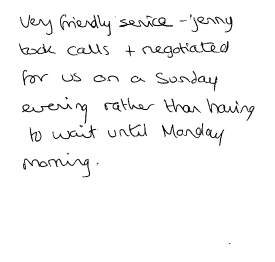 Very friendly service - Jenny
took calls + negotiated
for us on a Sunday
evening rather than having
to wait until Monday
morning.